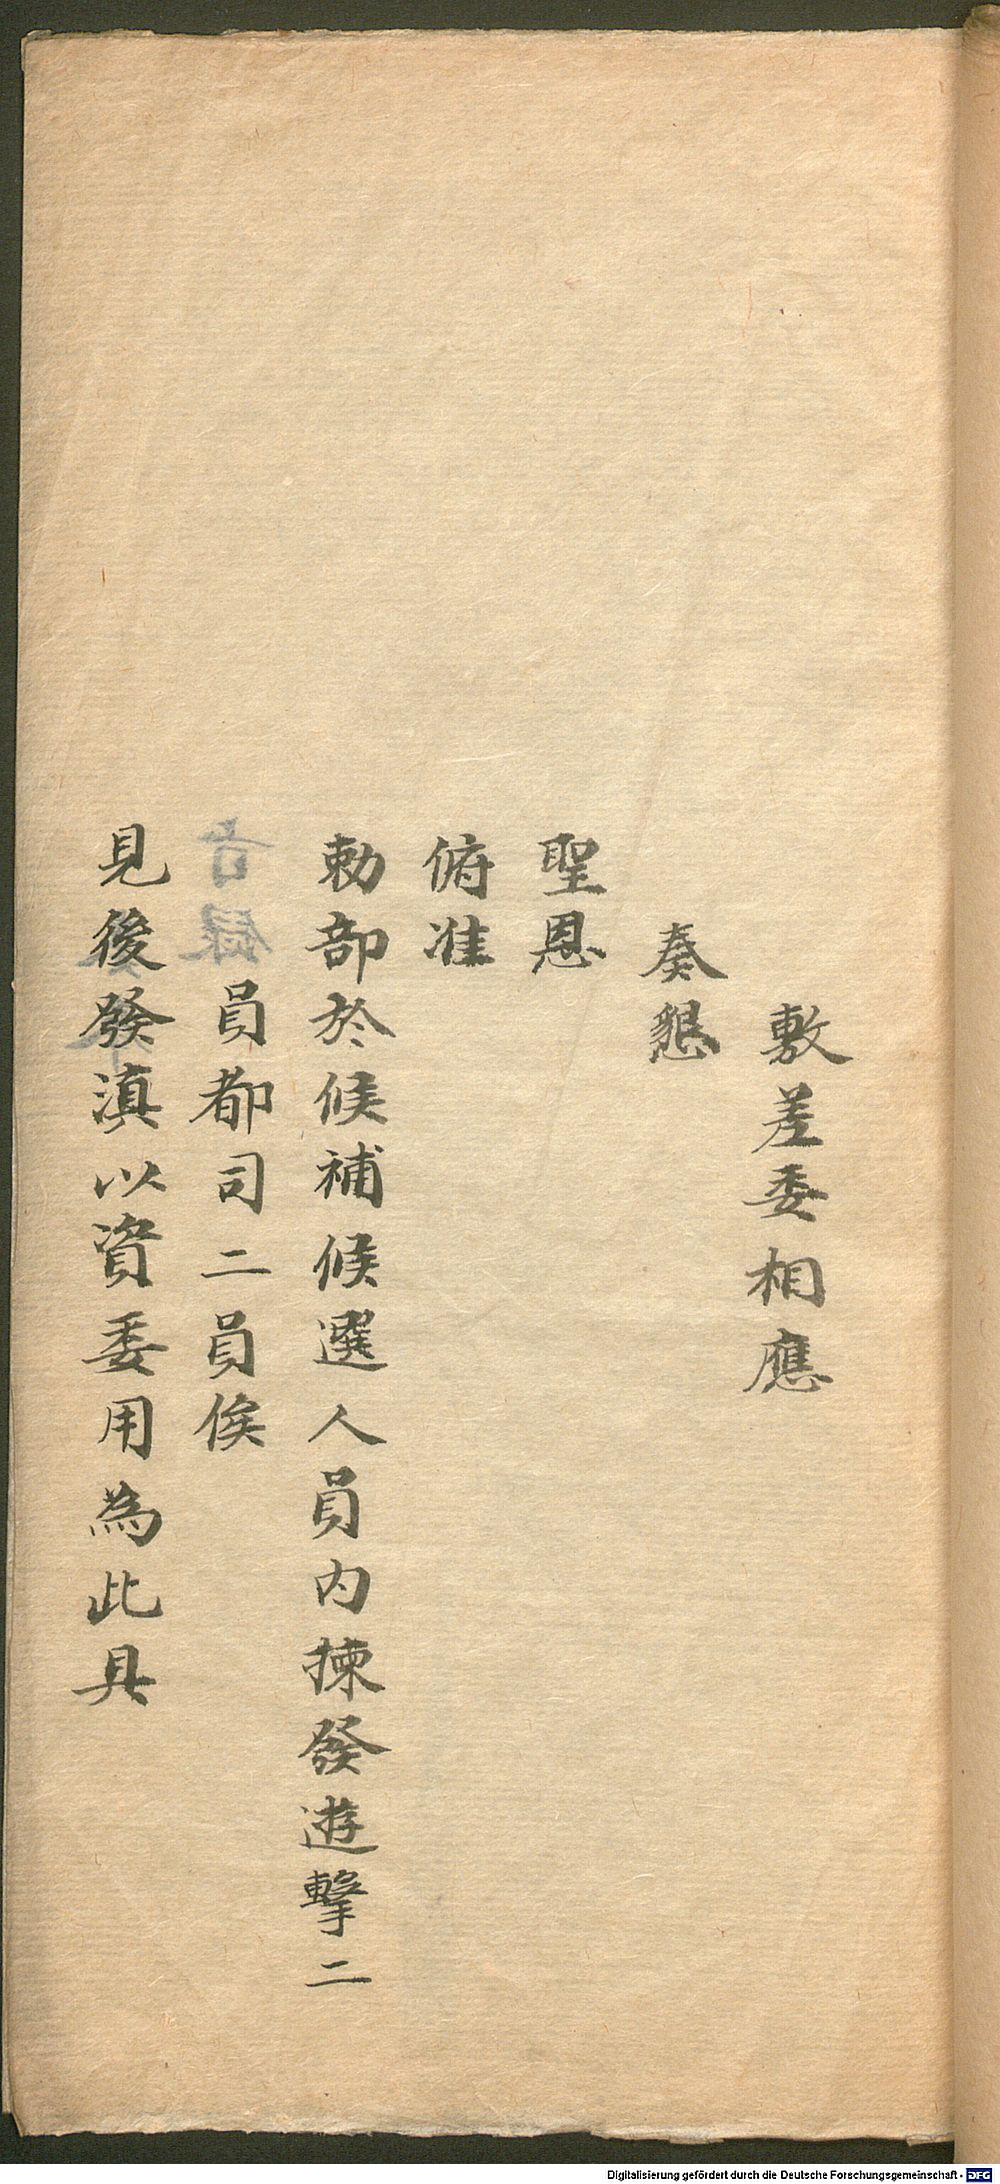 敷差委相應
奏懇
聖恩
俯准
勅部於候補候選人員内揀發遊擊二
員都司二員俟
見後發滇以資委用為此具
Digitalisierung gefördert durch die Deutsche Forschungsgemeinschaft - DFG